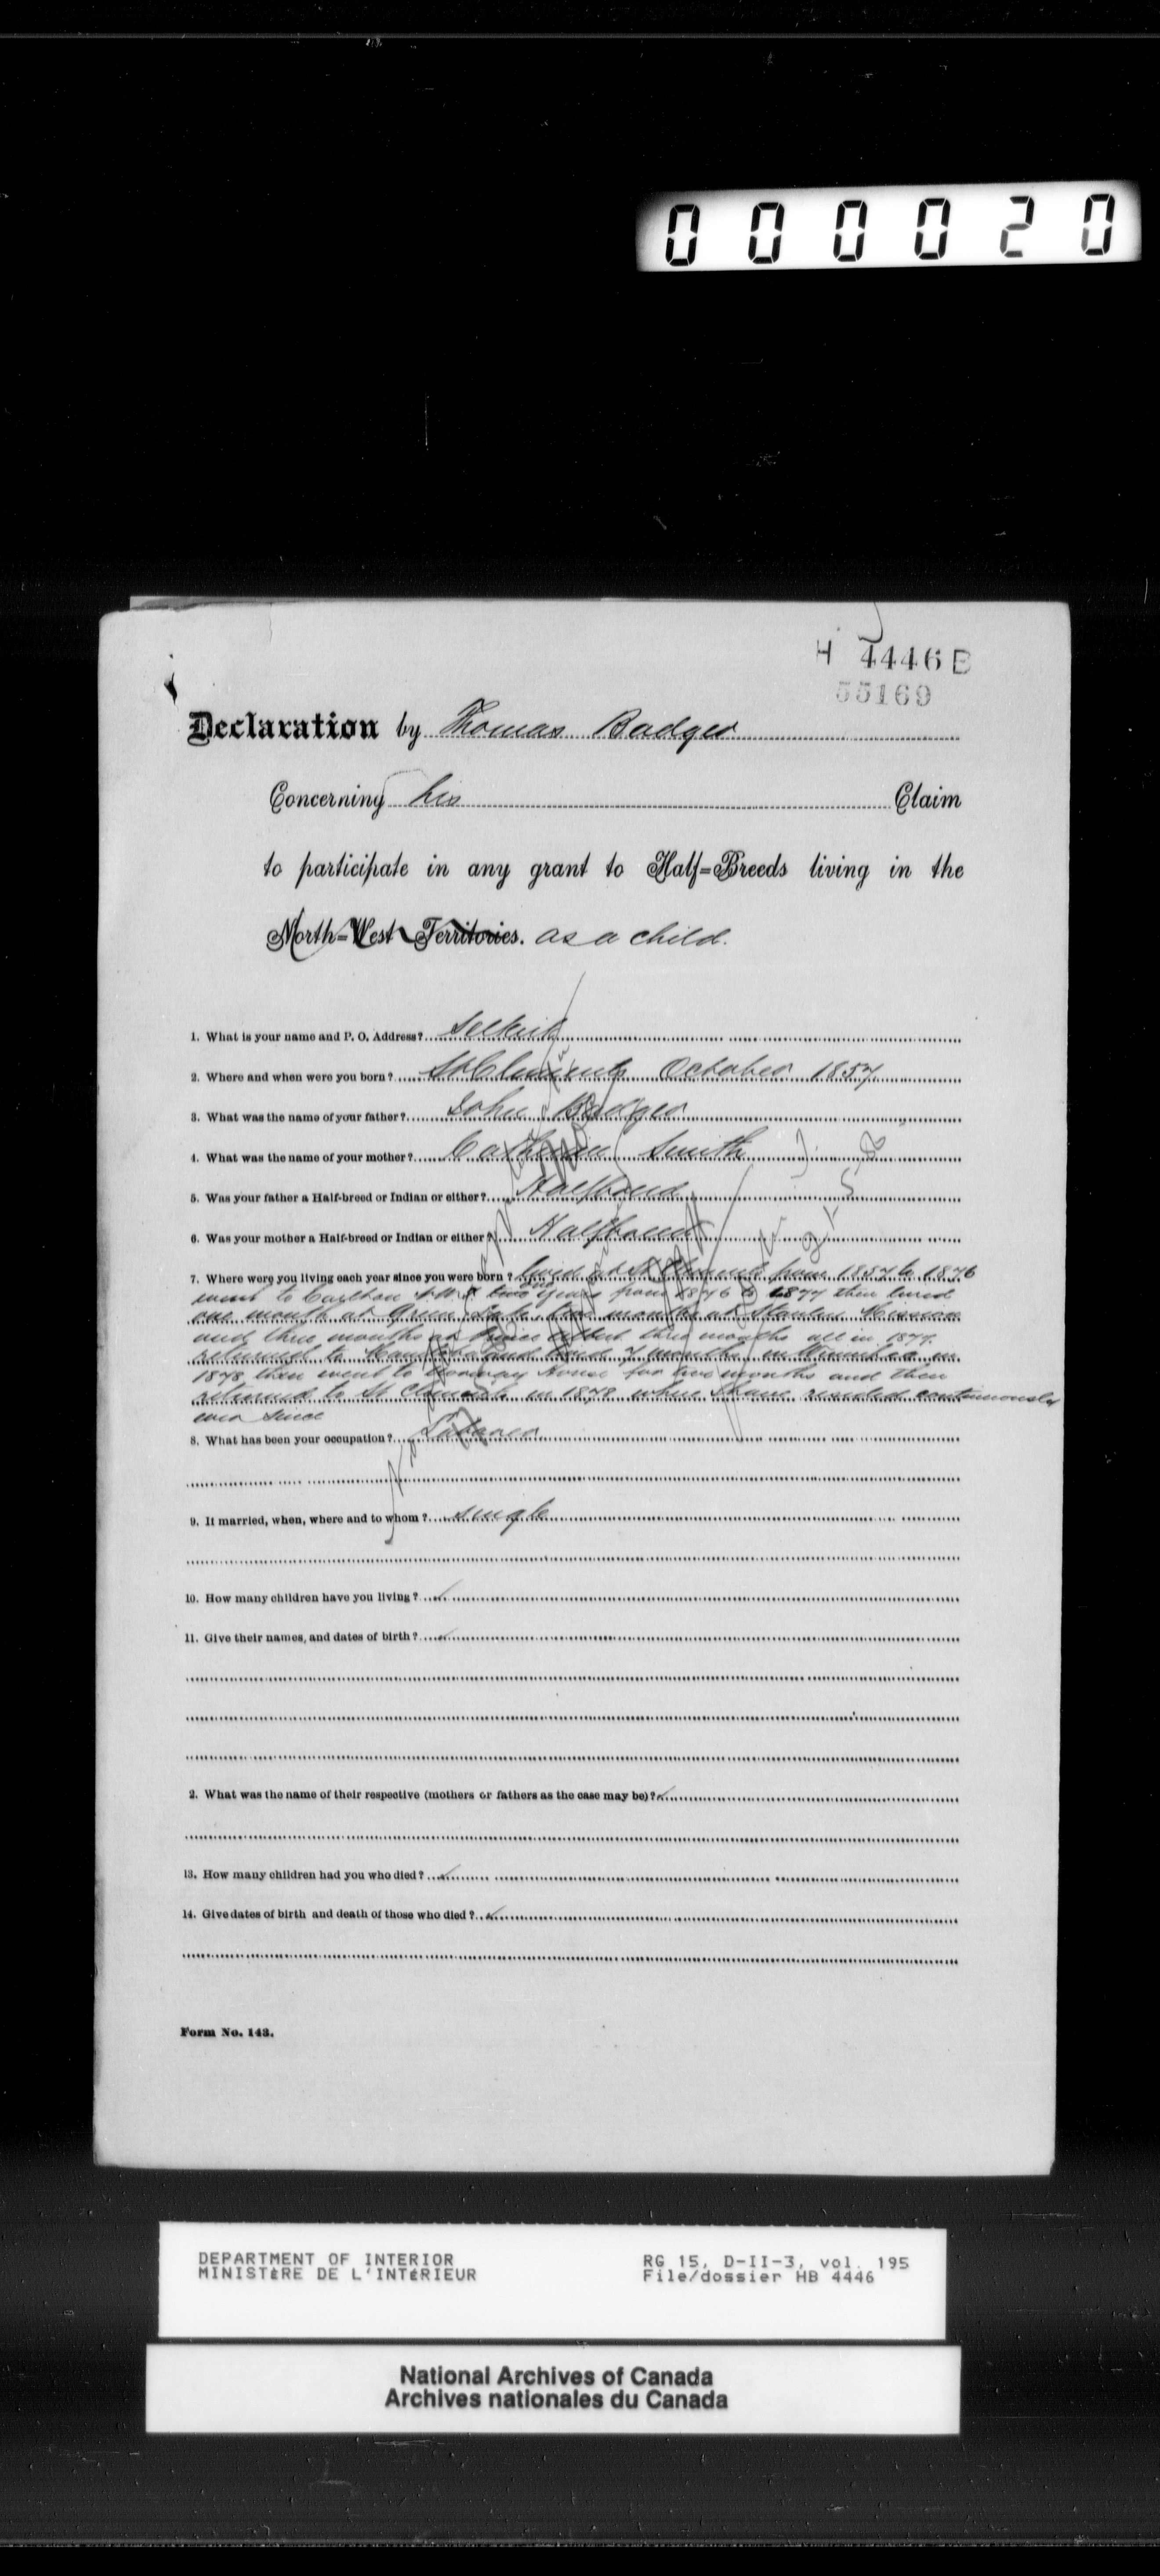 000020
H 4446 B
55169
Declaration by Thomas Badger
Concerning his Claim
to participate in any grant to Half=Breeds living in the
North=West Territories. as a child.
1. What is your name and P. O. Address? Selkirk
2. Where and when were you born? St Clements October 1857
3. What was the name of your father? John Badger
4. What was the name of your mother? Catherine Smith
5. Was your father a Half-breed or Indian or either? Halfbreed
6. Was your mother a Half-breed or Indian or either? Halfbreed
7. Where were you living each year since you were born? lived at St Clements from 1857 to 1876
went to Carlton from 1876 to 1877 then lived
one month at Green Lake two months at Stanley Mission
and three months at Prince Albert three months all in 1877.
returned to Manitoba and lived months in in
1878 then went to Norway House for two months and then
returned to St Clements in 1878 where I have resided continuously
ever since
8. What has been your occupation? Laborer
9. It married, when, where and to whom? single
10. How many children have you living?
11. Give their names, and dates of birth?
2. What was the name of their respective (mothers or fathers as the case may be)?
13. How many children had you who died?
14. Give dates of birth and death of those who died?
Form No. 143.
DEPARTMENT OF INTERIOR RG 15, D-II-3, vol. 195
MINISTÈRE DE L'INTÉRIEUR File/dossier HB 4446
National Archives of Canada
Archives nationales du Canada